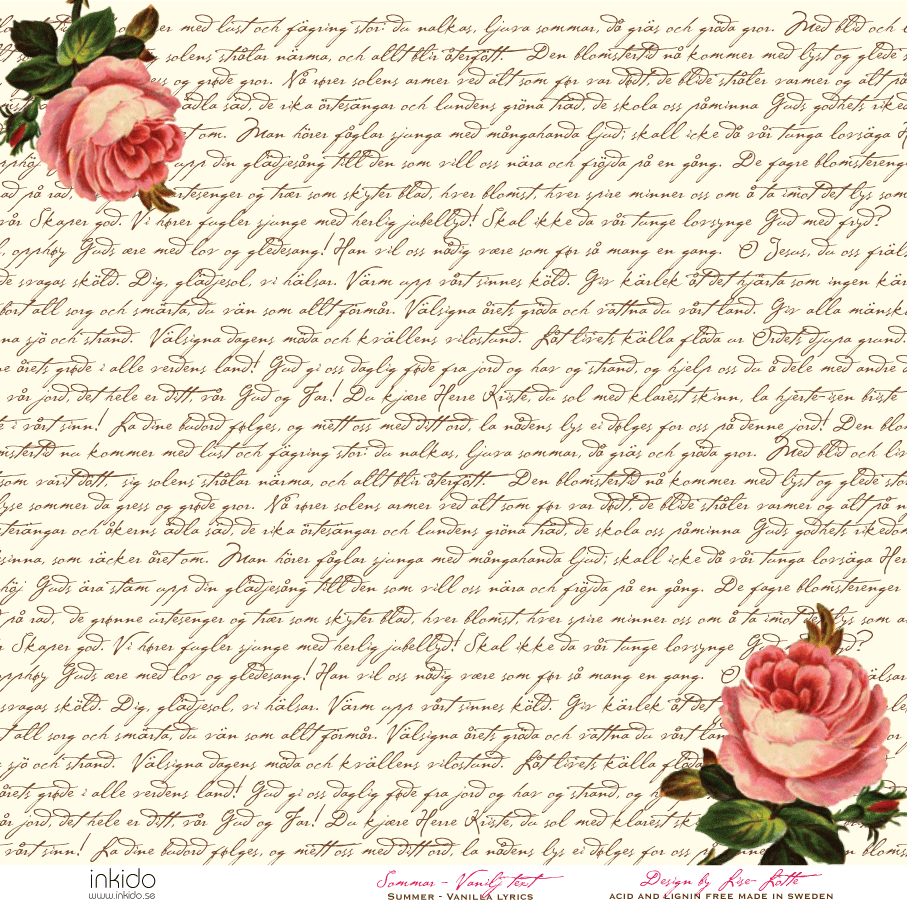 er med lust och fägring stor: du nalkas, ljuva sommar, då gräs och gröda gror. Med blid och l
solens strålar närma, och allt blir återfött. Den blomstertid nå kommer med lyst og glede s
ss og grøde gror. Nå rører solens armer ved alt som før var dødt, de blide stråler varmer og alt på
ädla säd, de rika örtesängar och lundens gröna träd, de skola oss påminna Guds godhets riked
et om. Man hörer fåglar sjunga med mångahanda ljud; skall icke då vår tunga lovsäga H
upp din glädjesång till den som vill oss nära och fröjda på en gång. De fagre blomstereng
ad på rad, rtesenger og trær som skyter blad, hver blomst hver spire minner oss om å ta imot det lys som
vår Skaper god. Vi hører fugler sjunge med herlig jubellyd! Skal ikke da vår tunge lovsynge Gud med fryd?
, opphøy Guds ære med lov og gledesang! Han vil oss nådig være som før så mang en gang. O Jesus, du oss fräls
de svagas sköld. Dig, glädjesol, vi hälsar. Värm upp vårt sinnes köld. Giv kärlek åt det hjärta som ingen kär
bort all sorg och smärta, du vän som allt förmår. Välsigna årets gröda och vattna du vårt land. Giv alla mänsk
na sjö och strand. Välsigna dagens möda och kvällens vilostund. Låt livets källa flöda ur Ordets djupa grund.
e årets grøde i alle verdens land! Gud gi oss daglig føde fra jord og hav og strand, og hjelp oss du å dele med andre d
vår jord, det hele er ditt, vår Gud og Far! Du kjære Herre Kriste, du sol med klarest skinn, la hjerte-isen briste
e i vårt sinn! La dine budord følges, og mett oss med ditt ord, la nådens lys ei dølges for oss på denne jord! Den blo
mstertid nu kommer med lust och fägring stor: du nalkas, ljuva sommar, då gräs och gröda gror. Med blid och liv
som varit dött, sig solens strålar närma, och allt blir återfött. Den blomstertid nå kommer med lyst og glede sto
lyse sommer da gress og grøde gror. Nå rører solens armer ved alt som før var dødt, de blide stråler varmer og alt på n
terängar och åkerns ädla säd, de rika örtesängar och lundens gröna träd, de skola oss påminna Guds godhets rikedom
sinna, som räcker året om. Man hörer fåglar sjunga med mångahanda ljud; skall icke då vår tunga lovsäga Her
höj Guds ära stäm upp din glädjesång till den som vill oss nära och fröjda på en gång. De fagre blomsterenger
på rad, de grønne urtesenger og trær som skyter blad, hver blomst, hver spire minner oss om å ta imot det lys som
Skaper god. Vi hører fugler sjunge med herlig jubellyd! Skal ikke da vår tunge lovsynge
pphøy Guds ære med lov og gledesang! Han vil oss nådig være som før så mang en gang. O älsar
svagas sköld. Dig, glädjesol, vi hälsar. Värm upp vårt sinnes köld. Giv kärlek åt det
t all sorg och smärta, du vän som allt förmår. Välsigna årets gröda och vattna du vårt lan
sjö och strand. Välsigna dagens möda och kvällens vilostund. Låt livets källa flöda
årets grøde i alle verdens land! Gud gi oss daglig føde fra jord og hav og strand, og h
år jord, det hele er ditt, vår Gud og Far! Du kjære Herre Kriste, du sol med klarest sk
vårt sinn! La dine budord følges, og mett oss med ditt ord, la nådens lys ei dølges for oss på n blomst
inkido
www.inkido.se
Sommar - Vanilj text
Summer - Vanilla lyrics
Design by Lise-Lotte
acid and lignin free made in sweden